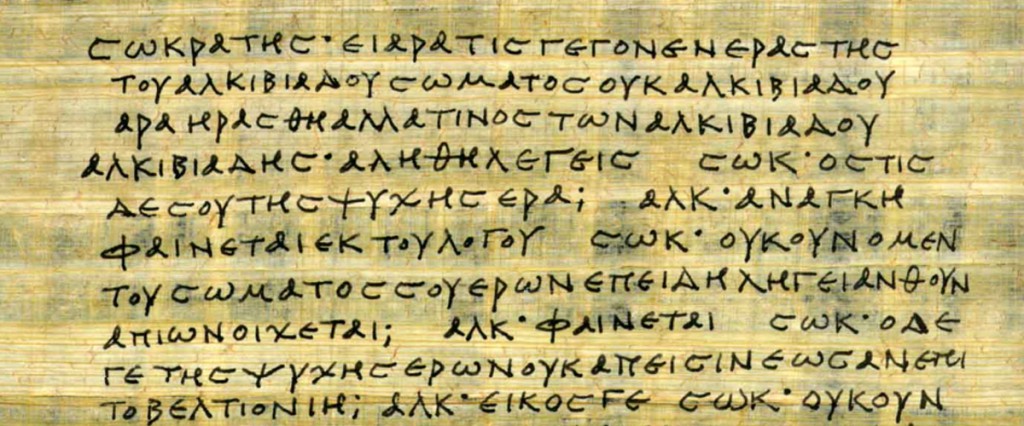 ϹωΚΡΑΤΗϹ· ΕΙΑΡΑΤΙϹΓΕΓΟΝΕΝΕΡΑϹΤΗϹ
ΤΟΥΑΛΚΙΒΙΑΔΟΥϹωΜΑΤΟϹΟΥΚΑΛΚΙΒΙΑΔΟΥ
ΑΡΑΗΡΑϹΘΗΑΛΛΑΤΙΝΟϹΤωΝΑΛΚΙΒΙΑΔΟΥ
ΑΛΚΙΒΙΑΔΗϹ· ΑΛΗΘΗΛΕΓΕΙϹ ϹωΚ· ΟϹΤΙϹ
ΔΕϹΟΥΤΗϹΨΥΧΗϹΕΡΑ; ΑΛΚ· ΑΝΑΓΚΗ
ΦΑΙΝΕΤΑΙΕΚΤΟΥΛΟΓΟΥ ϹωΚ· ΟΥΚΟΥΝΟΜΕΝ
ΤΟΥϹωΜΑΤΟϹϹΟΥΕΡωΝΕΠΕΙΔΗΛΗΓΕΙΑΝΘΟΥΝ
ΑΠΙωΝΟΙΧΕΤΑΙ; ΑΛΚ· ΦΑΙΝΕΤΑΙ ϹωΚ· ΟΔΕ
ΓΕΤΗϹΨΥΧΗϹΕΡωΝΟΥΚΑΠΕΙϹΙΝΕωϹΑΝΕΠΙ
ΤΟΒΕΛΤΙΟΝΙΗ; ΑΛΚ· ΕΙΚΟϹΓΕ ϹωΚ· ΟΥΚΟΥΝ